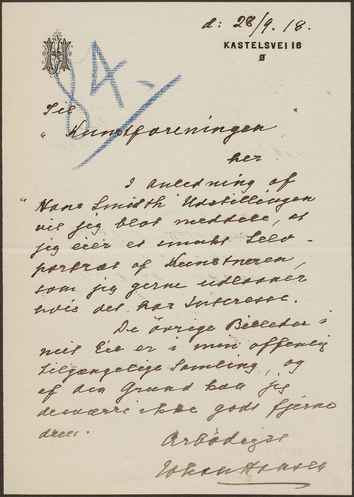 H
d: 28/9. 18.
KASTELSVEI 16
Ø
84.
Til
"Kunstforeningen"
her
I Anledning af
"Hans Smidth" Udstillingen
vil jeg blot meddele, at
jeg eier et smukt Selv-
portræt af Kunstneren,
som jeg gerne udlaaner
hvis det har Interesse.
De øvrige Billeder i
mit Eie er i min offentlig
tilgængelige Samling, og
af den Grund kan jeg
desværre ikke godt fjerne
dem.
Ærbødigst
Johan Hansen